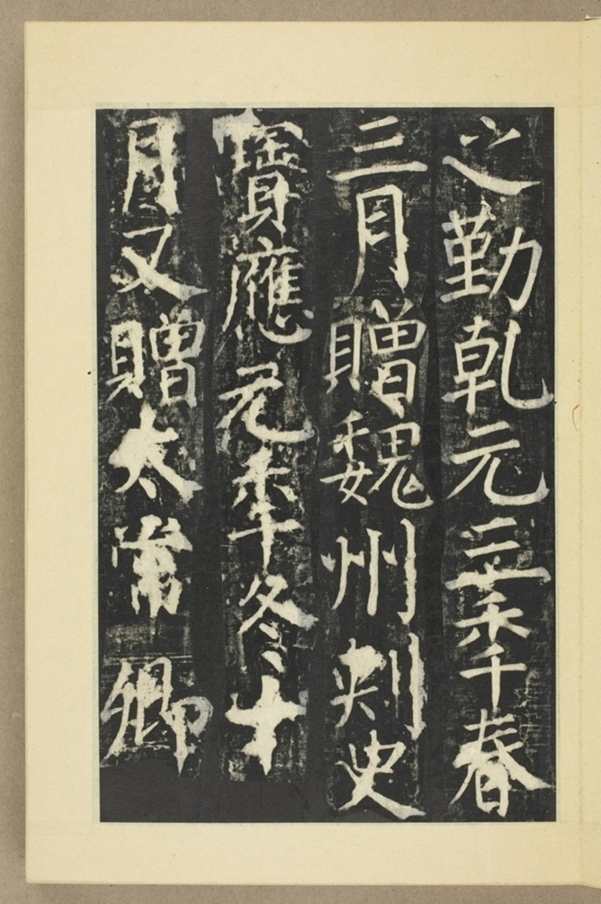 之勤乾元三秊春
三月贈魏州刾史
寶應元秊冬十
月又贈太常卿